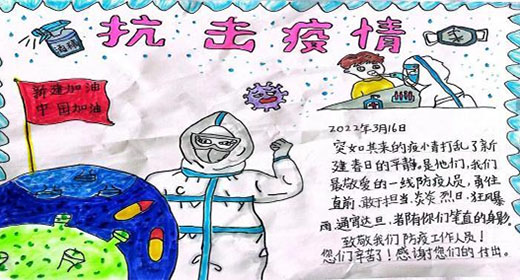 抗击疫情
消毒
新建加油
中国加油
2022年3月16日
突如其来的疫情打乱了新
建春日的平静。是他们，我们
最敬爱的一线防疫人员，勇往
直前，敢于担当，炎炎烈日，狂风暴
雨，通宵达旦，都有你们笔直的身影，
致敬我们防疫工作人员！
您们辛苦了！感谢您们的付出。